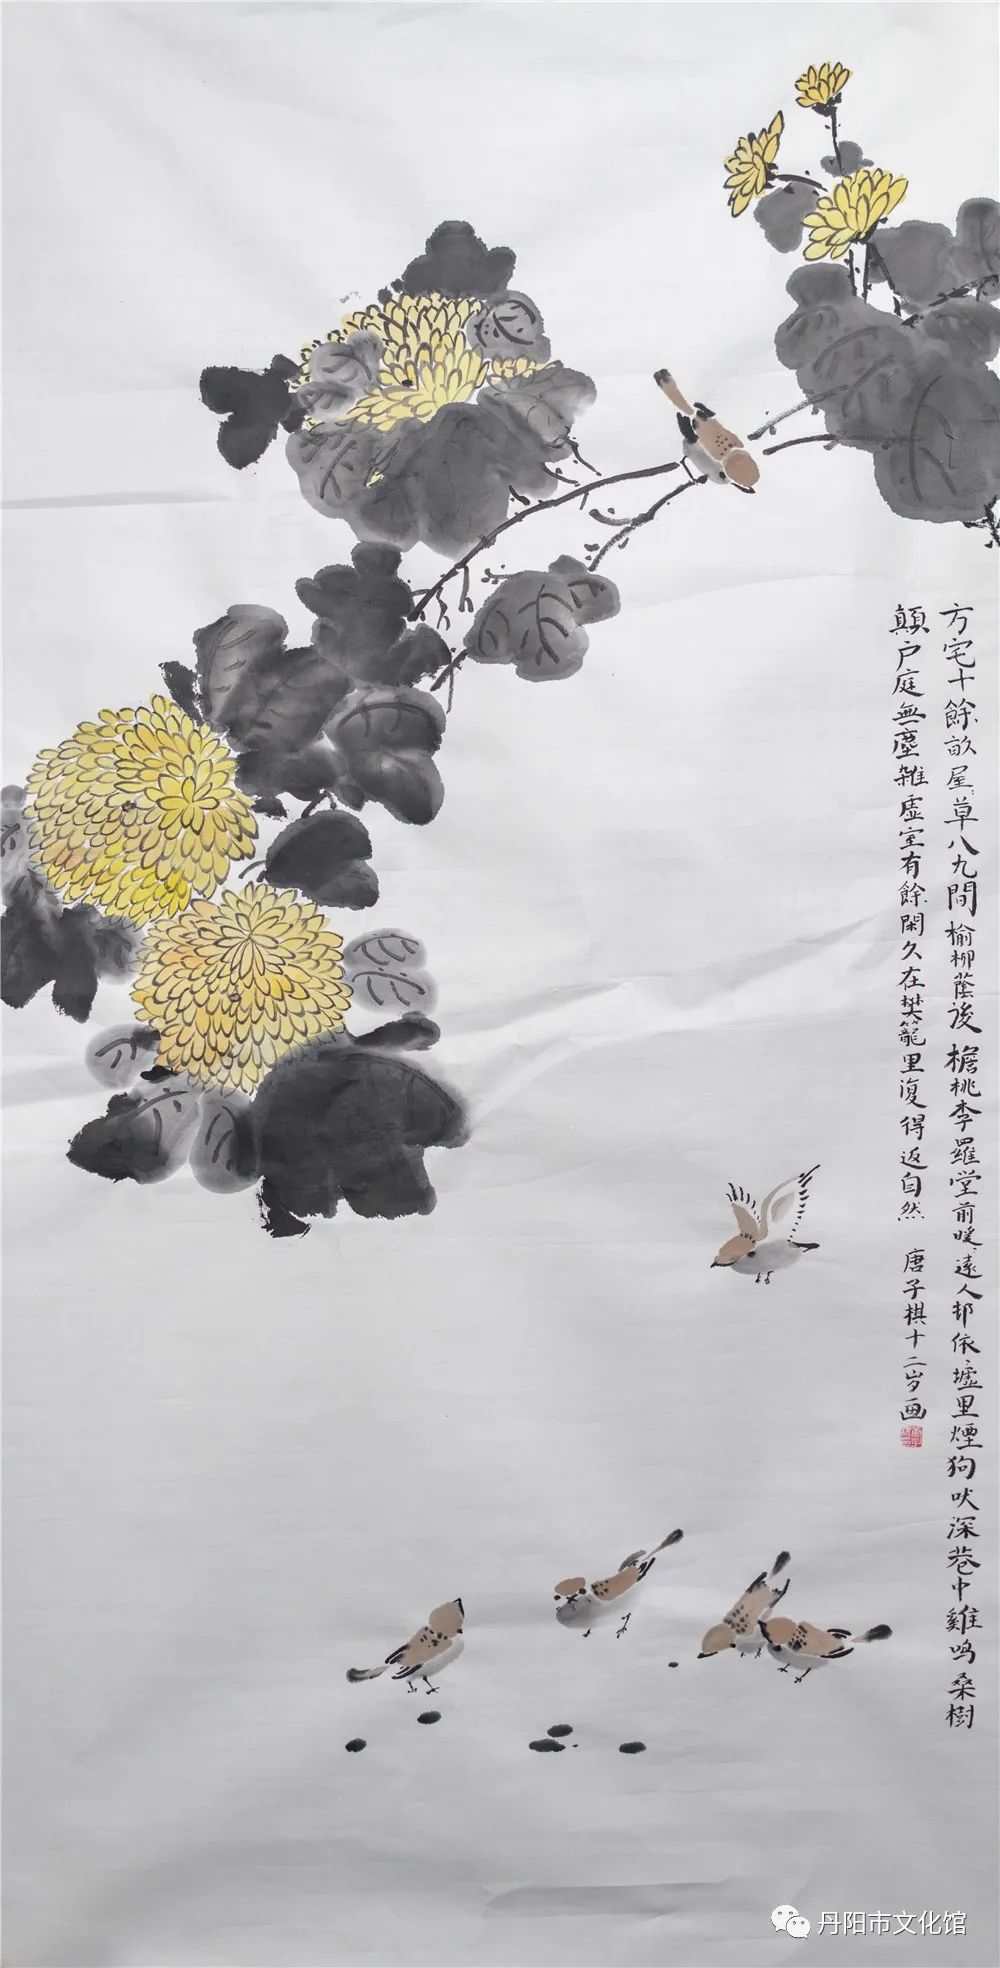 方宅十餘畝屋草八九間榆柳蔭後檐桃李羅堂前暖、遠人邨依、墟里煙狗吠深巷中雞鸣桑樹
顛户庭無塵雜虚室有餘閑久在樊籠里復得返自然 唐子棋十二岁画
丹阳市文化馆